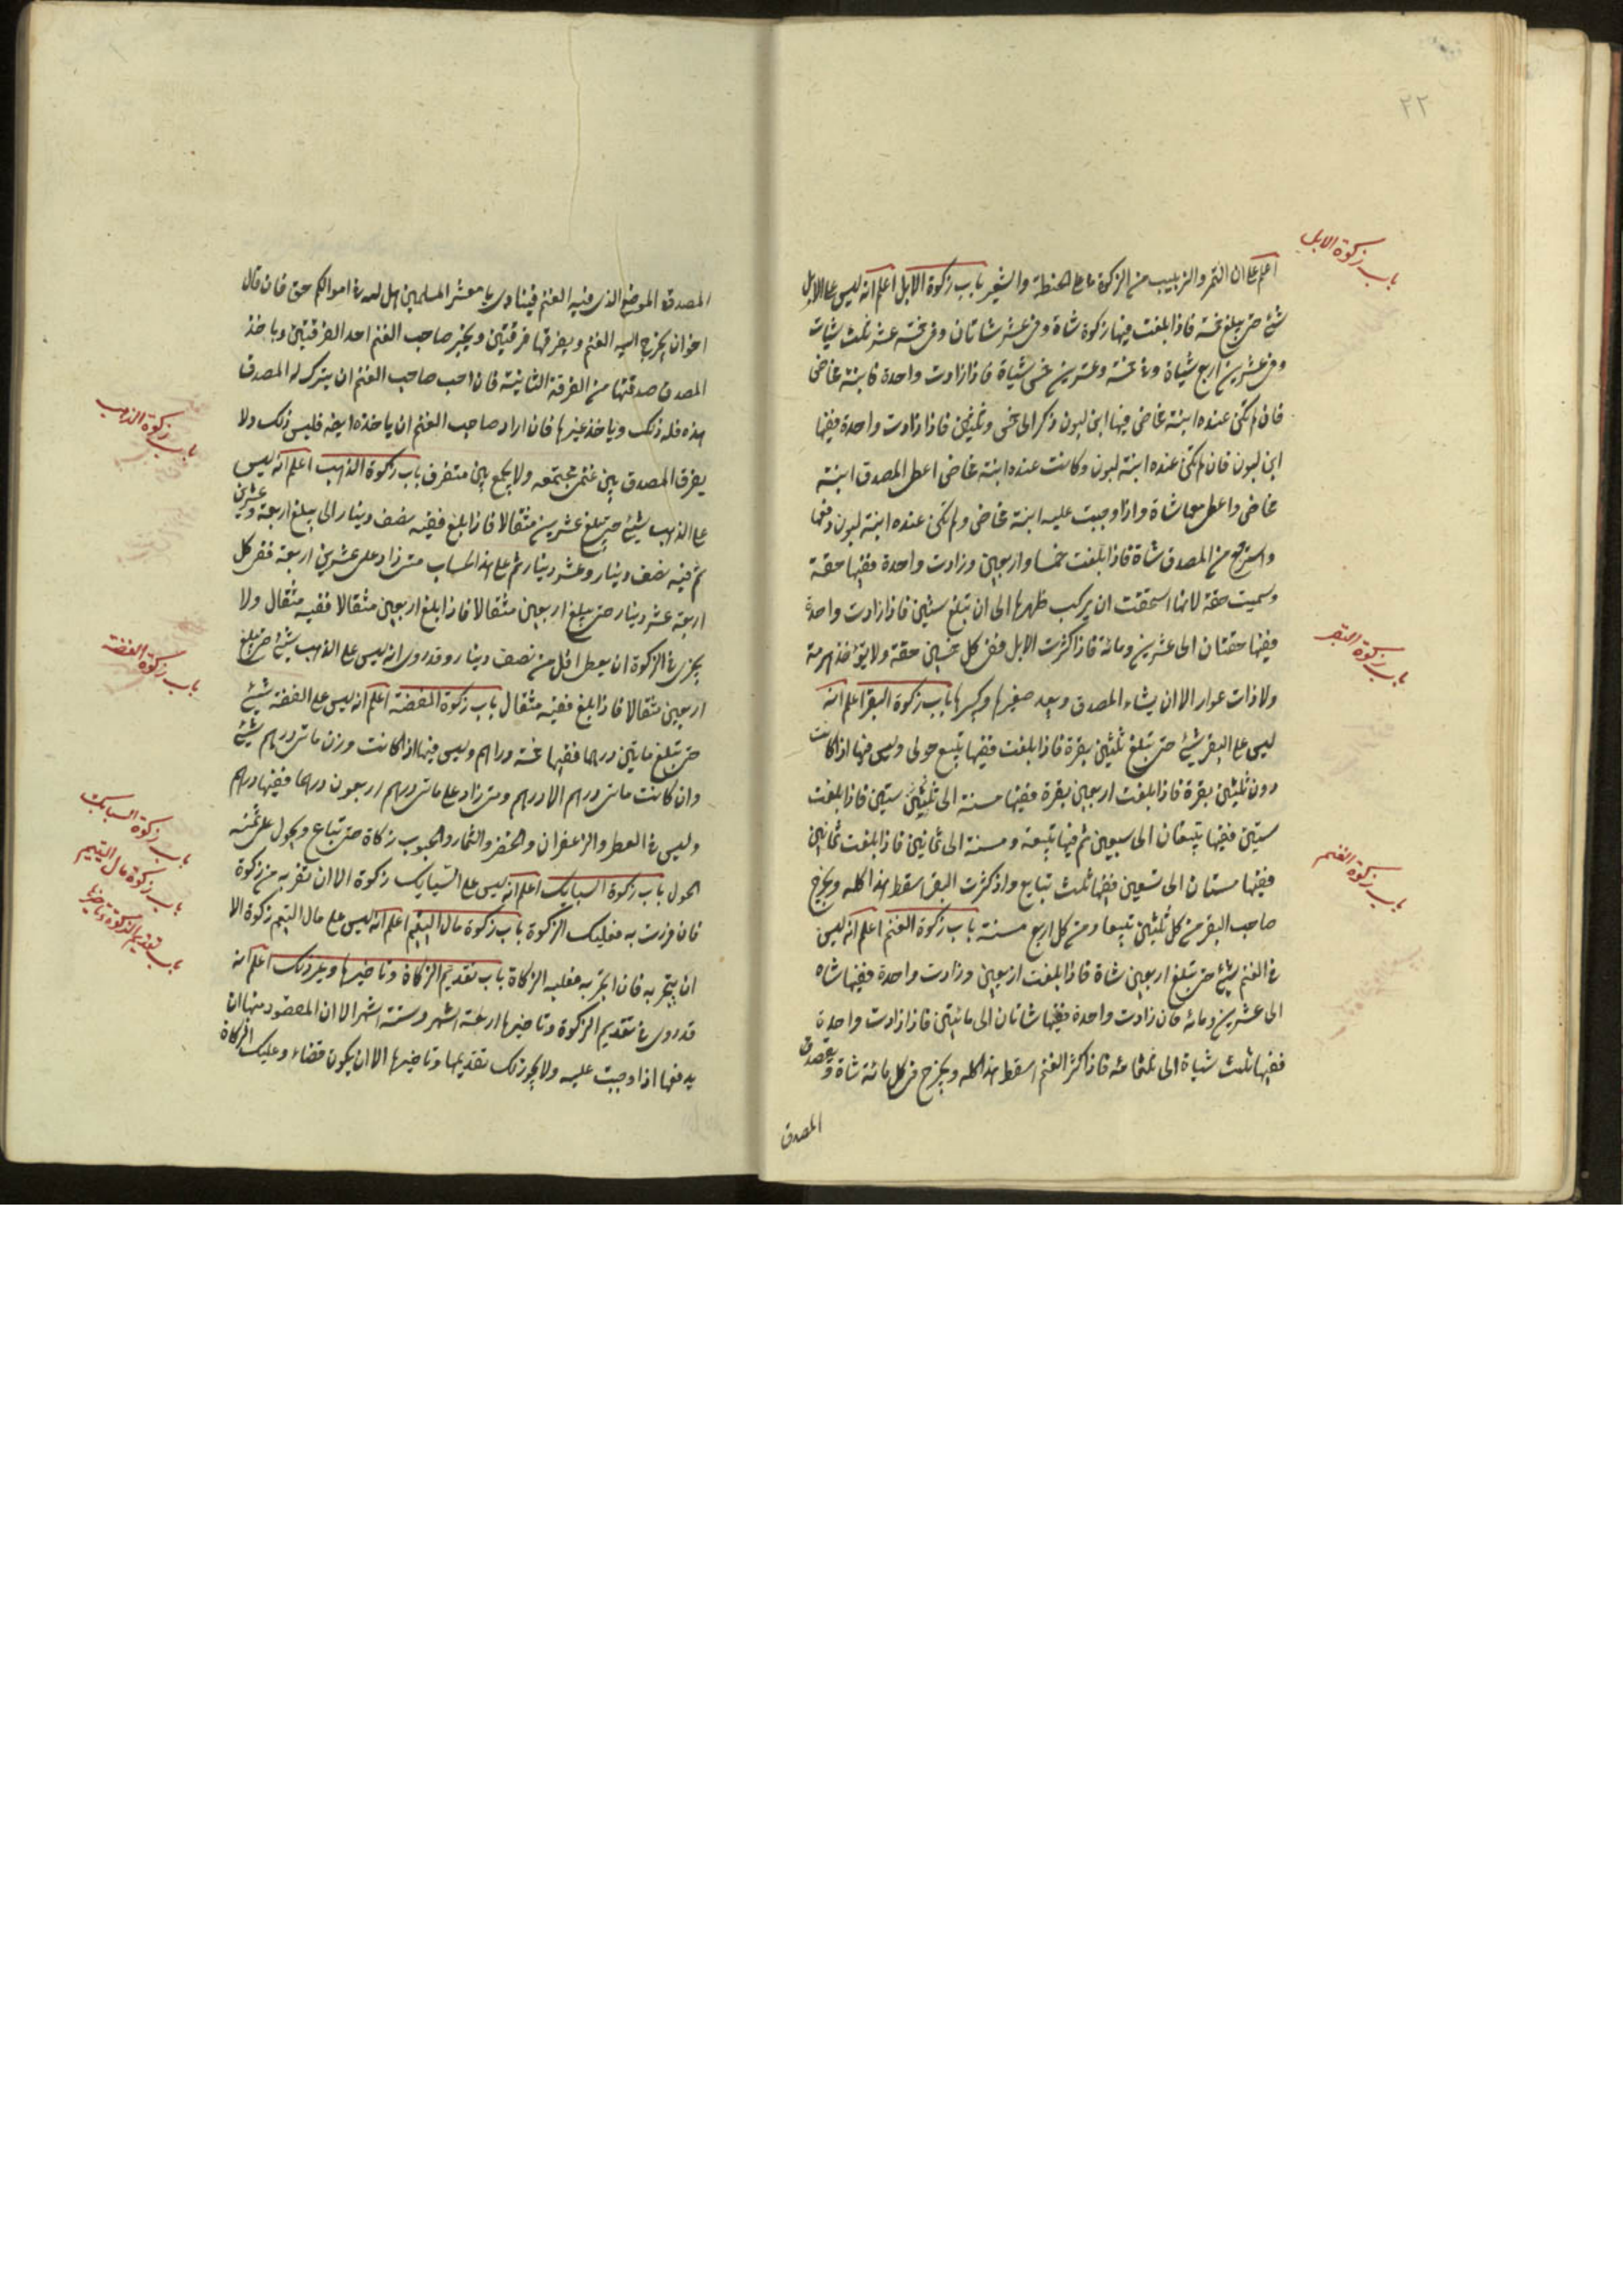 ٢٢
باب زكوة الابل
اعلم ان على التمر والزبيب من الزكوة ما على الحنطة والشعير باب زكوة الابل اعلم انه ليس على الابل
شئ حتى يبلغ خمسة فاذا بلغت فيها زكوة شاة وفى عشر شاتان وفى خمسة عشر ثلث شياة
وفى عشرين اربع شياة وفى خمسة وعشرين خمس شياة فاذا زادت واحدة فابنة مخاض
فان لم تكن عنده ابنة مخاض فيها ابن لبون ذكر الى خمس وثلثين فاذا زادت واحدة ففيها
ابن لبون فان لم تكن عنده ابنة لبون وكانت عنده ابنة مخاض اعطى المصدق ابنة
مخاض واعطى معها شاة واذا وجبت عليه ابنة مخاض ولم تكن عنده ابنة لبون دفعها
واسترجع من المصدق شاة فاذا بلغت خمسا واربعين وزادت واحدة ففيها حقة
وسميت حقة لانها استحقت ان يركب ظهرها الى ان تبلغ ستين فاذا زادت واحدة
ففيها حقتان الى عشرين ومائة فاذا كثرت الابل ففى كل خمسين حقة ولا يؤخذ هرمة
ولا ذات عوار الا ان يشاء المصدق ويعد صغيرها وكبيرها باب زكوة البقر اعلم انه
باب زكوة البقر
ليس على البقر شئ حتى تبلغ ثلثين بقرة فاذا بلغت ففيها تبيع حولى وليس فيها اذا كانت
دون ثلثين بقرة فاذا بلغت اربعين بقرة ففيها مسنة الى ستين فاذا بلغت
ستين ففيها تبيعان الى سبعين ثم فيها تبيعة ومسنة الى ثمانين فاذا بلغت ثمانين
ففيها مسنتان الى تسعين ففيها ثلث تبايع واذ كثرت البقر اسقط هذا كله ويخرج
صاحب البقر من كل ثلثين تبيعا ومن كل اربع مسنة باب زكوة الغنم اعلم انه ليس
باب زكوة الغنم
فى الغنم شئ حتى تبلغ اربعين شاة فاذا بلغت اربعين وزادت واحدة ففيها شاه
الى عشرين ومائه فان زادت واحدة ففيها شاتان الى مائتين فاذا زادت واحدة
ففيها ثلث شياة الى ثلثمائه فاذا كثر الغنم اسقط هذا كله ويخرج من كل مائة شاة ويقصد
المصدق
المصدق الموضع الذى فيه الغنم فينادى يا معشر المسلمين هل لله فى اموالكم حق فان قال
اخوان يخرج اليه الغنم ويفرقها فرقتين ويخير صاحب الغنم احد الفرقتين وياخذ
المصدق صدقتها من الفرقة الثانية فان احب صاحب الغنم ان يترك له المصدق
هذه فله ذلك وياخذ غيرها فان اراد صاحب الغنم ان ياخذه ايضه فليس ذلك ولا
يفرق المصدق بين غنم مجتمعه ولا يجمع بين متفرق باب زكوة الذهب اعلم انه ليس
باب زكوة الذهب
على الذهب شيئ حتى تبلغ عشرين مثقالا فاذا بلغ ففيه نصف دينار الى يبلغ اربعة وعشرين
ثم فيه نصف دينار وعشر دينار ثم على هذا الحساب متى زاد على عشرين اربعة ففى كل
اربعة عشر دينار حتى يبلغ اربعين مثقالا فاذا بلغ اربعين مثقالا ففيه مثقال ولا
يجزى فى الزكوة ان يعطى اقل من نصف دينار وقد روى انه ليس على الذهب شيئ حتى يبلغ
باب زكوة الفضة
اربعين مثقالا فاذا بلغ ففيه مثقال باب زكوة الفضة اعلم انه ليس على الفضة شيئ
حتى تبلغ مايتين درهما ففيها خمسة دراهم وليس فيها اذا كانت وزن ماتى درهم شيئ
وان كانت ماتى درهم الا درهم ومتى زاد على ماتى درهم اربعون درهما ففيها درهم
باب زكوة السبايك
وليس فى العطر والزعفران والخضر والثمار والحبوب زكاة حتى تباع ويحول على ثمنه
الحول باب زكوة السبايك اعلم انه ليس على السبايك زكوة الا ان تفر به من زكوة
باب زكوة مال اليتيم
فان فررت به فعليك الزكوة باب زكوة مال اليتيم اعلم انه ليس على مال اليتيم زكوة الا
باب تقديم الزكوة وتاخيرها
ان يتجر به فان اتجر به فعليه الزكاة باب تقديم الزكاة وتاخيرها وغير ذلك اعلم انه
قد روى فى تقديم الزكوة وتاخيرها اربعة اشهر وستة اشهر الا ان المقصود منها ان
يدفعها اذا وجبت عليه ولا يجوز لك تقديمها وتاخيرها الا ان يكون قضاء وعليك الزكاة